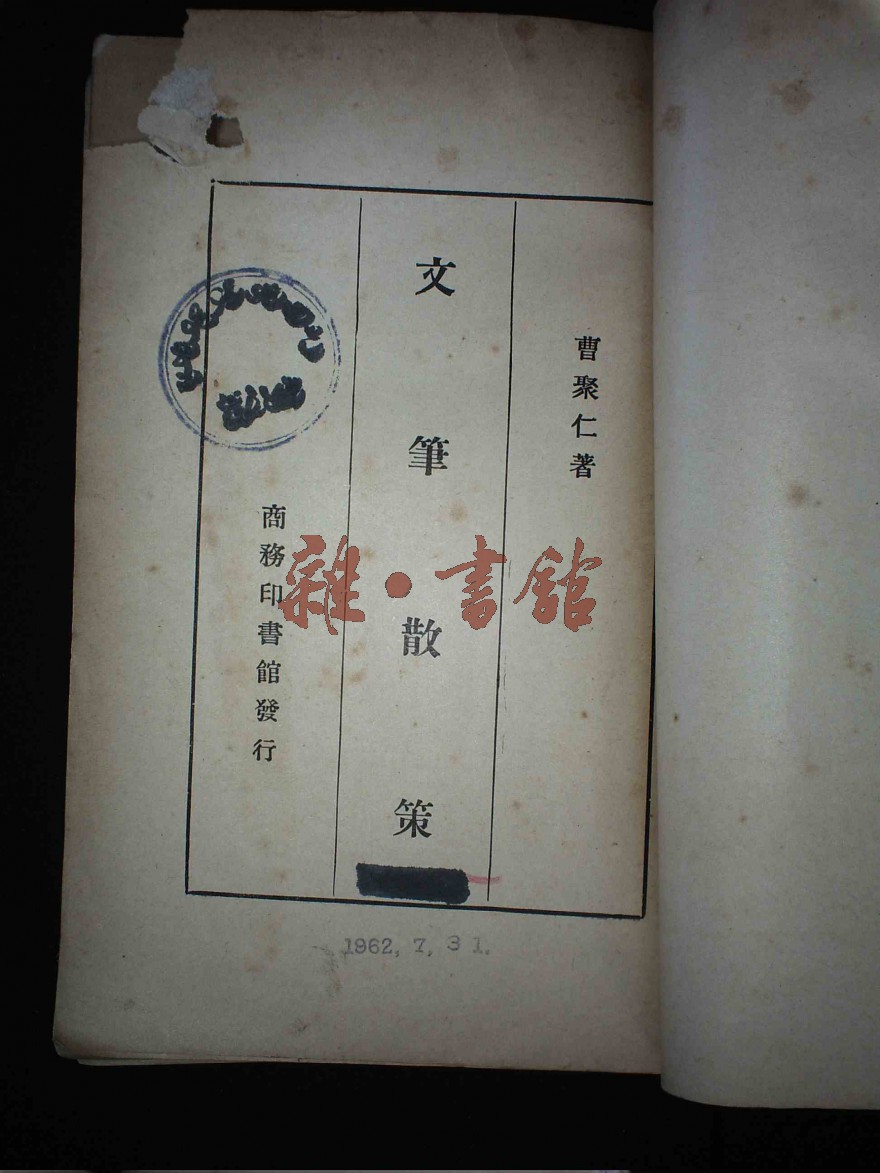 曹聚仁著
文筆散策
商務印書館發行
1962, 7, 31.
雜·書館